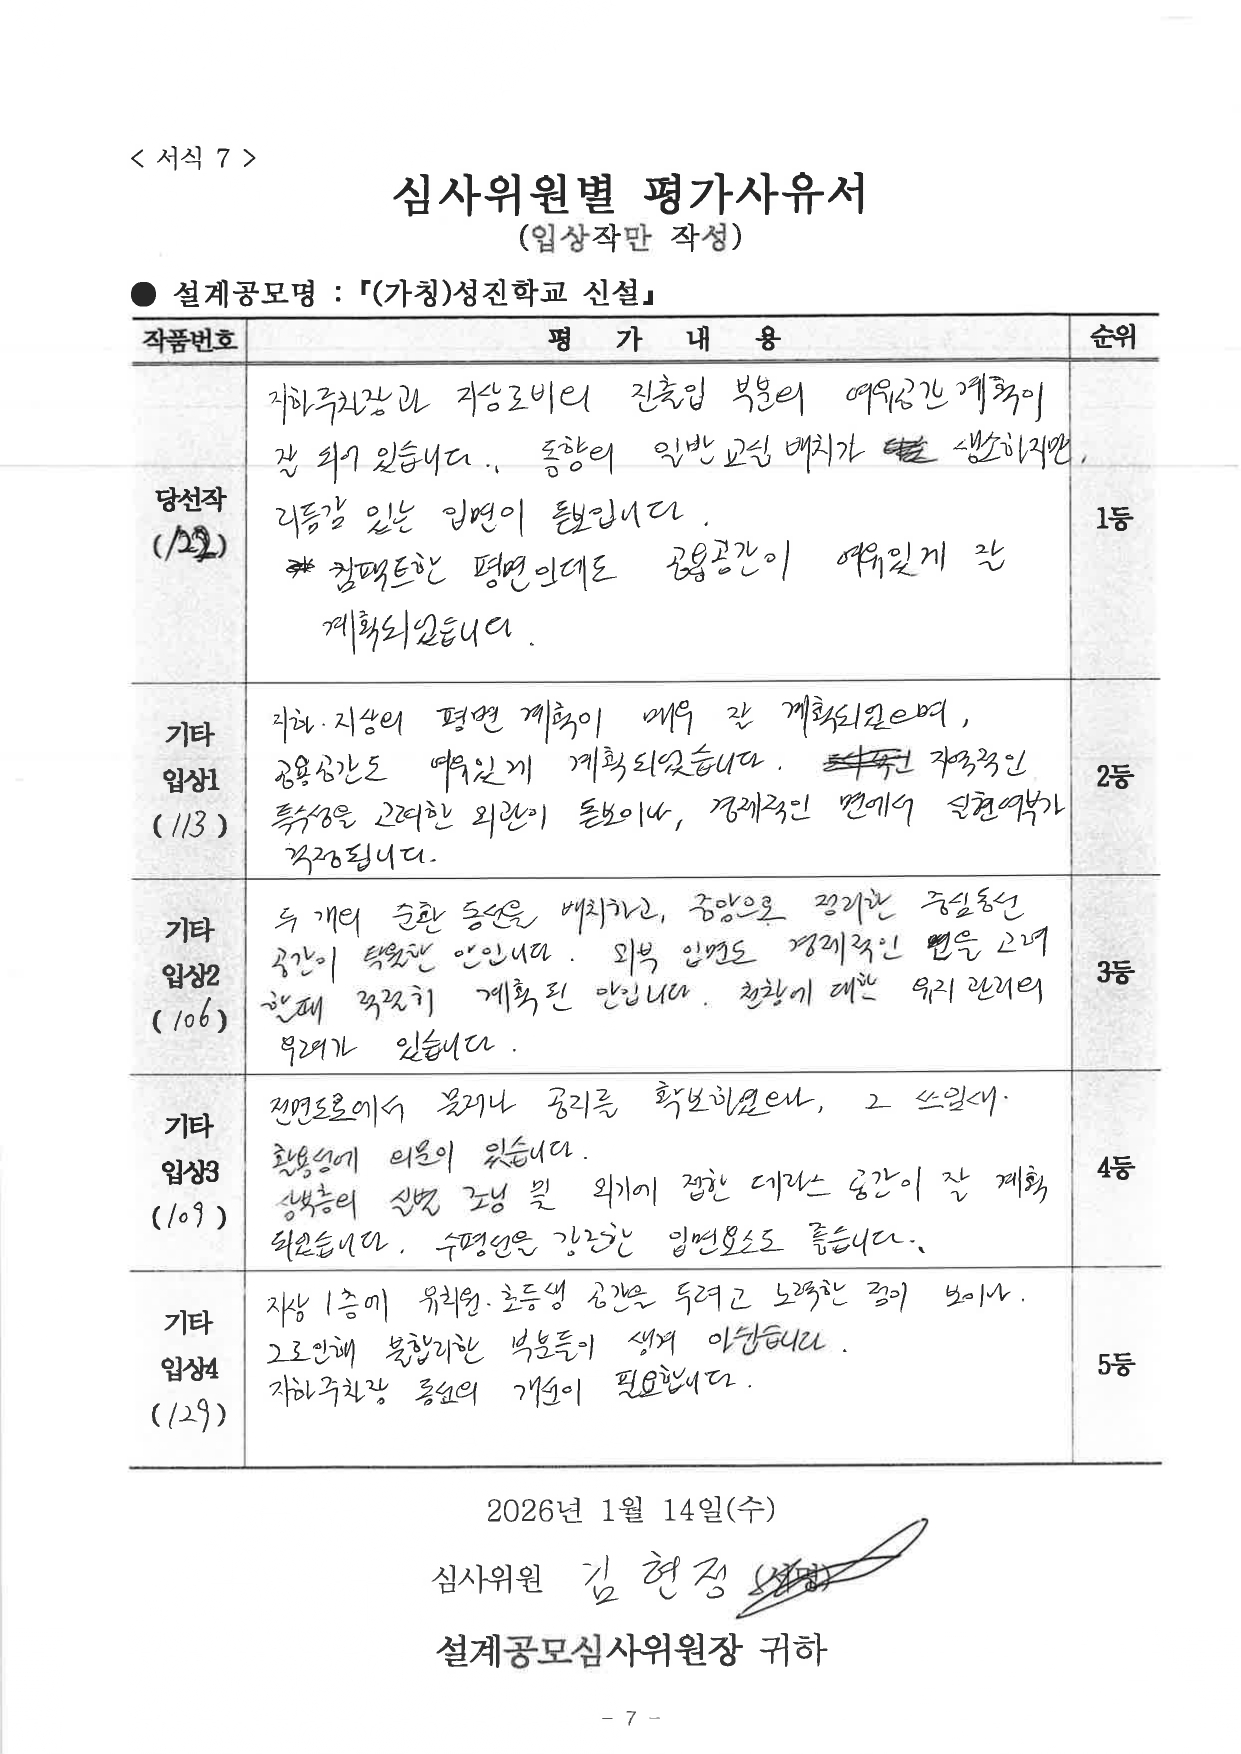 < 서식 7 >
심사위원별 평가사유서
(입상작만 작성)
● 설계공모명 : 『(가칭)성진학교 신설』
작품번호 평 가 내 용 순위
당선작
(122)
지하주차장과 지상로비의 진출입 부분의 여유공간 계획이
잘 되어 있습니다. 동향의 일반교실 배치가 생소하지만,
리듬감 있는 입면이 돋보입니다.
컴팩트한 평면인데도 공용공간이 여유있게 잘
계획되었습니다.
1등
기타
입상1
(113)
지하·지상의 평면 계획이 매우 잘 계획되었으며,
공용공간도 여유있게 계획되었습니다. 지역적인
특수성을 고려한 외관이 돋보이나, 경제적인 면에서 실현여부가
걱정됩니다.
2등
기타
입상2
(106)
두 개의 순환 동선을 배치하고, 중앙으로 정리한 중심동선
공간이 탁월한 안입니다. 외부 입면도 경제적인 면을 고려
할때 적절히 계획된 안입니다. 천창에 대한 유지관리의
우려가 있습니다.
3등
기타
입상3
(109)
전면도로에서 물러나 공지를 확보하였으나, 그 쓰임새·
활용성에 의문이 있습니다.
상부층의 실별 조닝 및 외기에 접한 테라스 공간이 잘 계획
되었습니다. 수평선을 강조한 입면요소도 좋습니다.
4등
기타
입상4
(129)
지상 1층에 유치원·초등생 공간을 두려고 노력한 점이 보이나.
그로인해 불합리한 부분들이 생겨 아쉽습니다.
지하주차장 동선의 개선이 필요합니다.
5등
2026년 1월 14일(수)
심사위원 김현정 (서명)
설계공모심사위원장 귀하
- 7 -